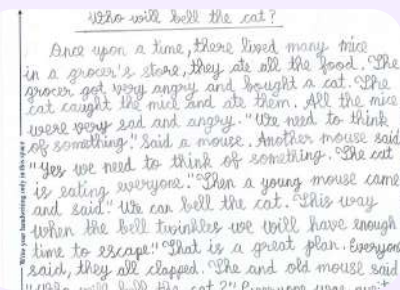 Who will bell the cat?
Once upon a time, there lived many mice
in a grocer's store, they ate all the food. The
grocer got very angry and bought a cat. The
cat caught the mice and ate them. All the mice
were very sad and angry. "We need to think
of something." Said a mouse. Another mouse said
"Yes we need to think of something. The cat
is eating everyone." Then a young mouse came
and said." We can bell the cat. This way
when the bell twinkles we will have enough
time to escape". That is a great plan. Everyone
said, they all clapped. The and old mouse said
"Who will bell the cat?" Everyone was quit
Write your handwriting only in this space